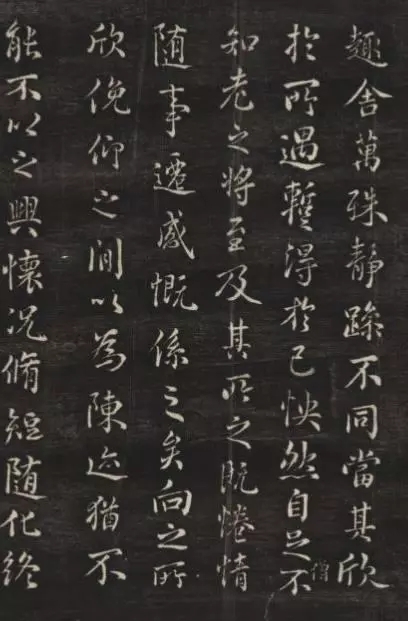 趣舍萬殊靜躁不同當其欣
於所遇蹔得於己怏然自足不
知老之將至及其所之既惓情
隨事遷感慨係之矣向之所
欣俛仰之閒以為陳迹猶不
能不以之興懷況脩短隨化終
僧